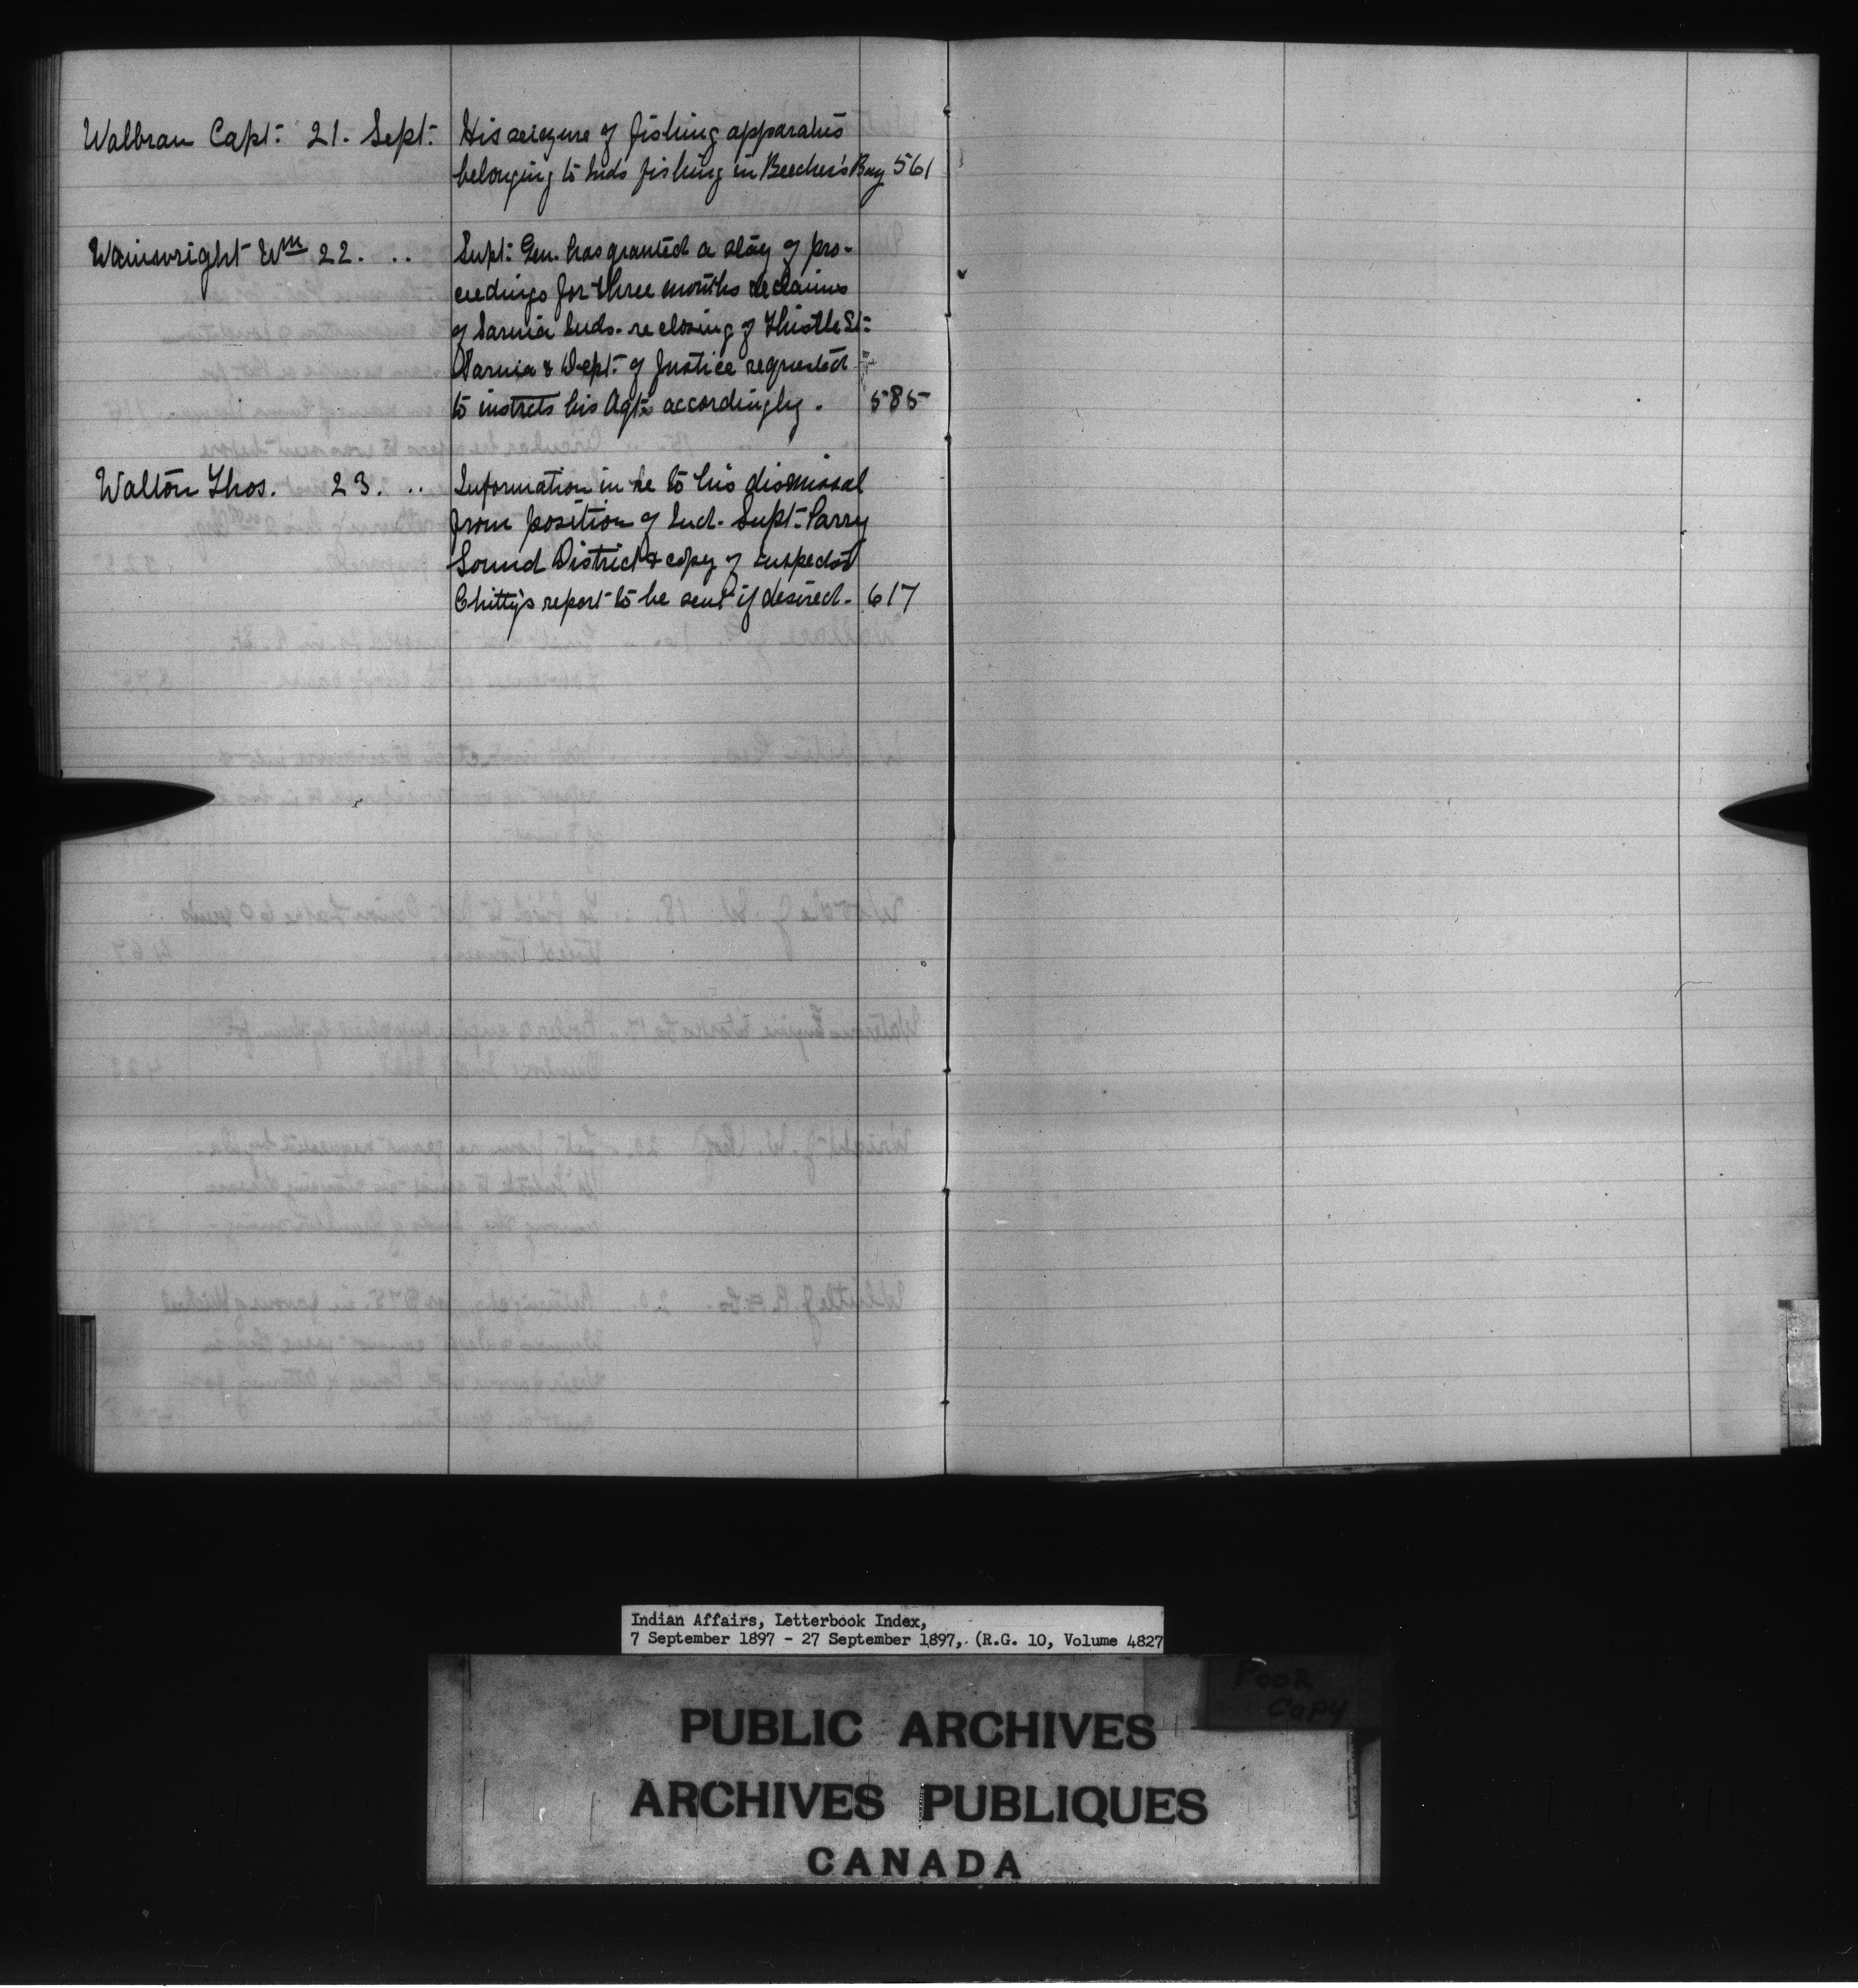 Walbran Capt. 21. Sept. His seizure of fishing apparatus
belonging to Inds fishing in Beecher's Bay 561
Wainwright Wm 22. .. Supt. Gen. has granted a stay of pro-
ceedings for three months re claims
of Sarnia Inds. re closing of Thistle St.
Sarnia & Dept. of Justice requested
to instrcts his Agts accordingly. 585
Walton Thos. 23. .. Information in re to his dismissal
from position of Ind. Supt. Parry
Sound District & copy of Inspector
Chitty's report to be sent if desired. 617
Indian Affairs, Letterbook Index,
7 September 1897 - 27 September 1897, (R.G. 10, Volume 4827
POOR
COPY
PUBLIC ARCHIVES
ARCHIVES PUBLIQUES
CANADA